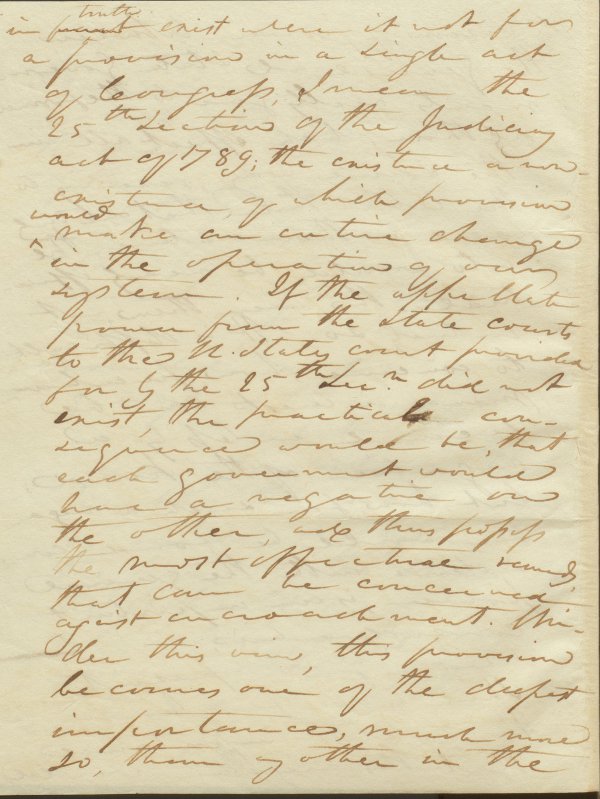 truth
in exist were it not for
a provision in a single act
of Congress, I mean the
25th Section of the Judiciary
act of 1789; the existence or non-
existence of which provision
would
make an entire change
in the operation of our
system. If the appellate
power from the State courts
to the U. States court provided
for by the 25th Secn did not
exist, the practical con-
sequence would be, that
each goverment would
have a negative on
the other, and thus possess
the most effectual remedy,
that can be conceived
against encroachment. Un-
der this view, this provision
becomes one of the deepest
importance, much more
so, than any other in the